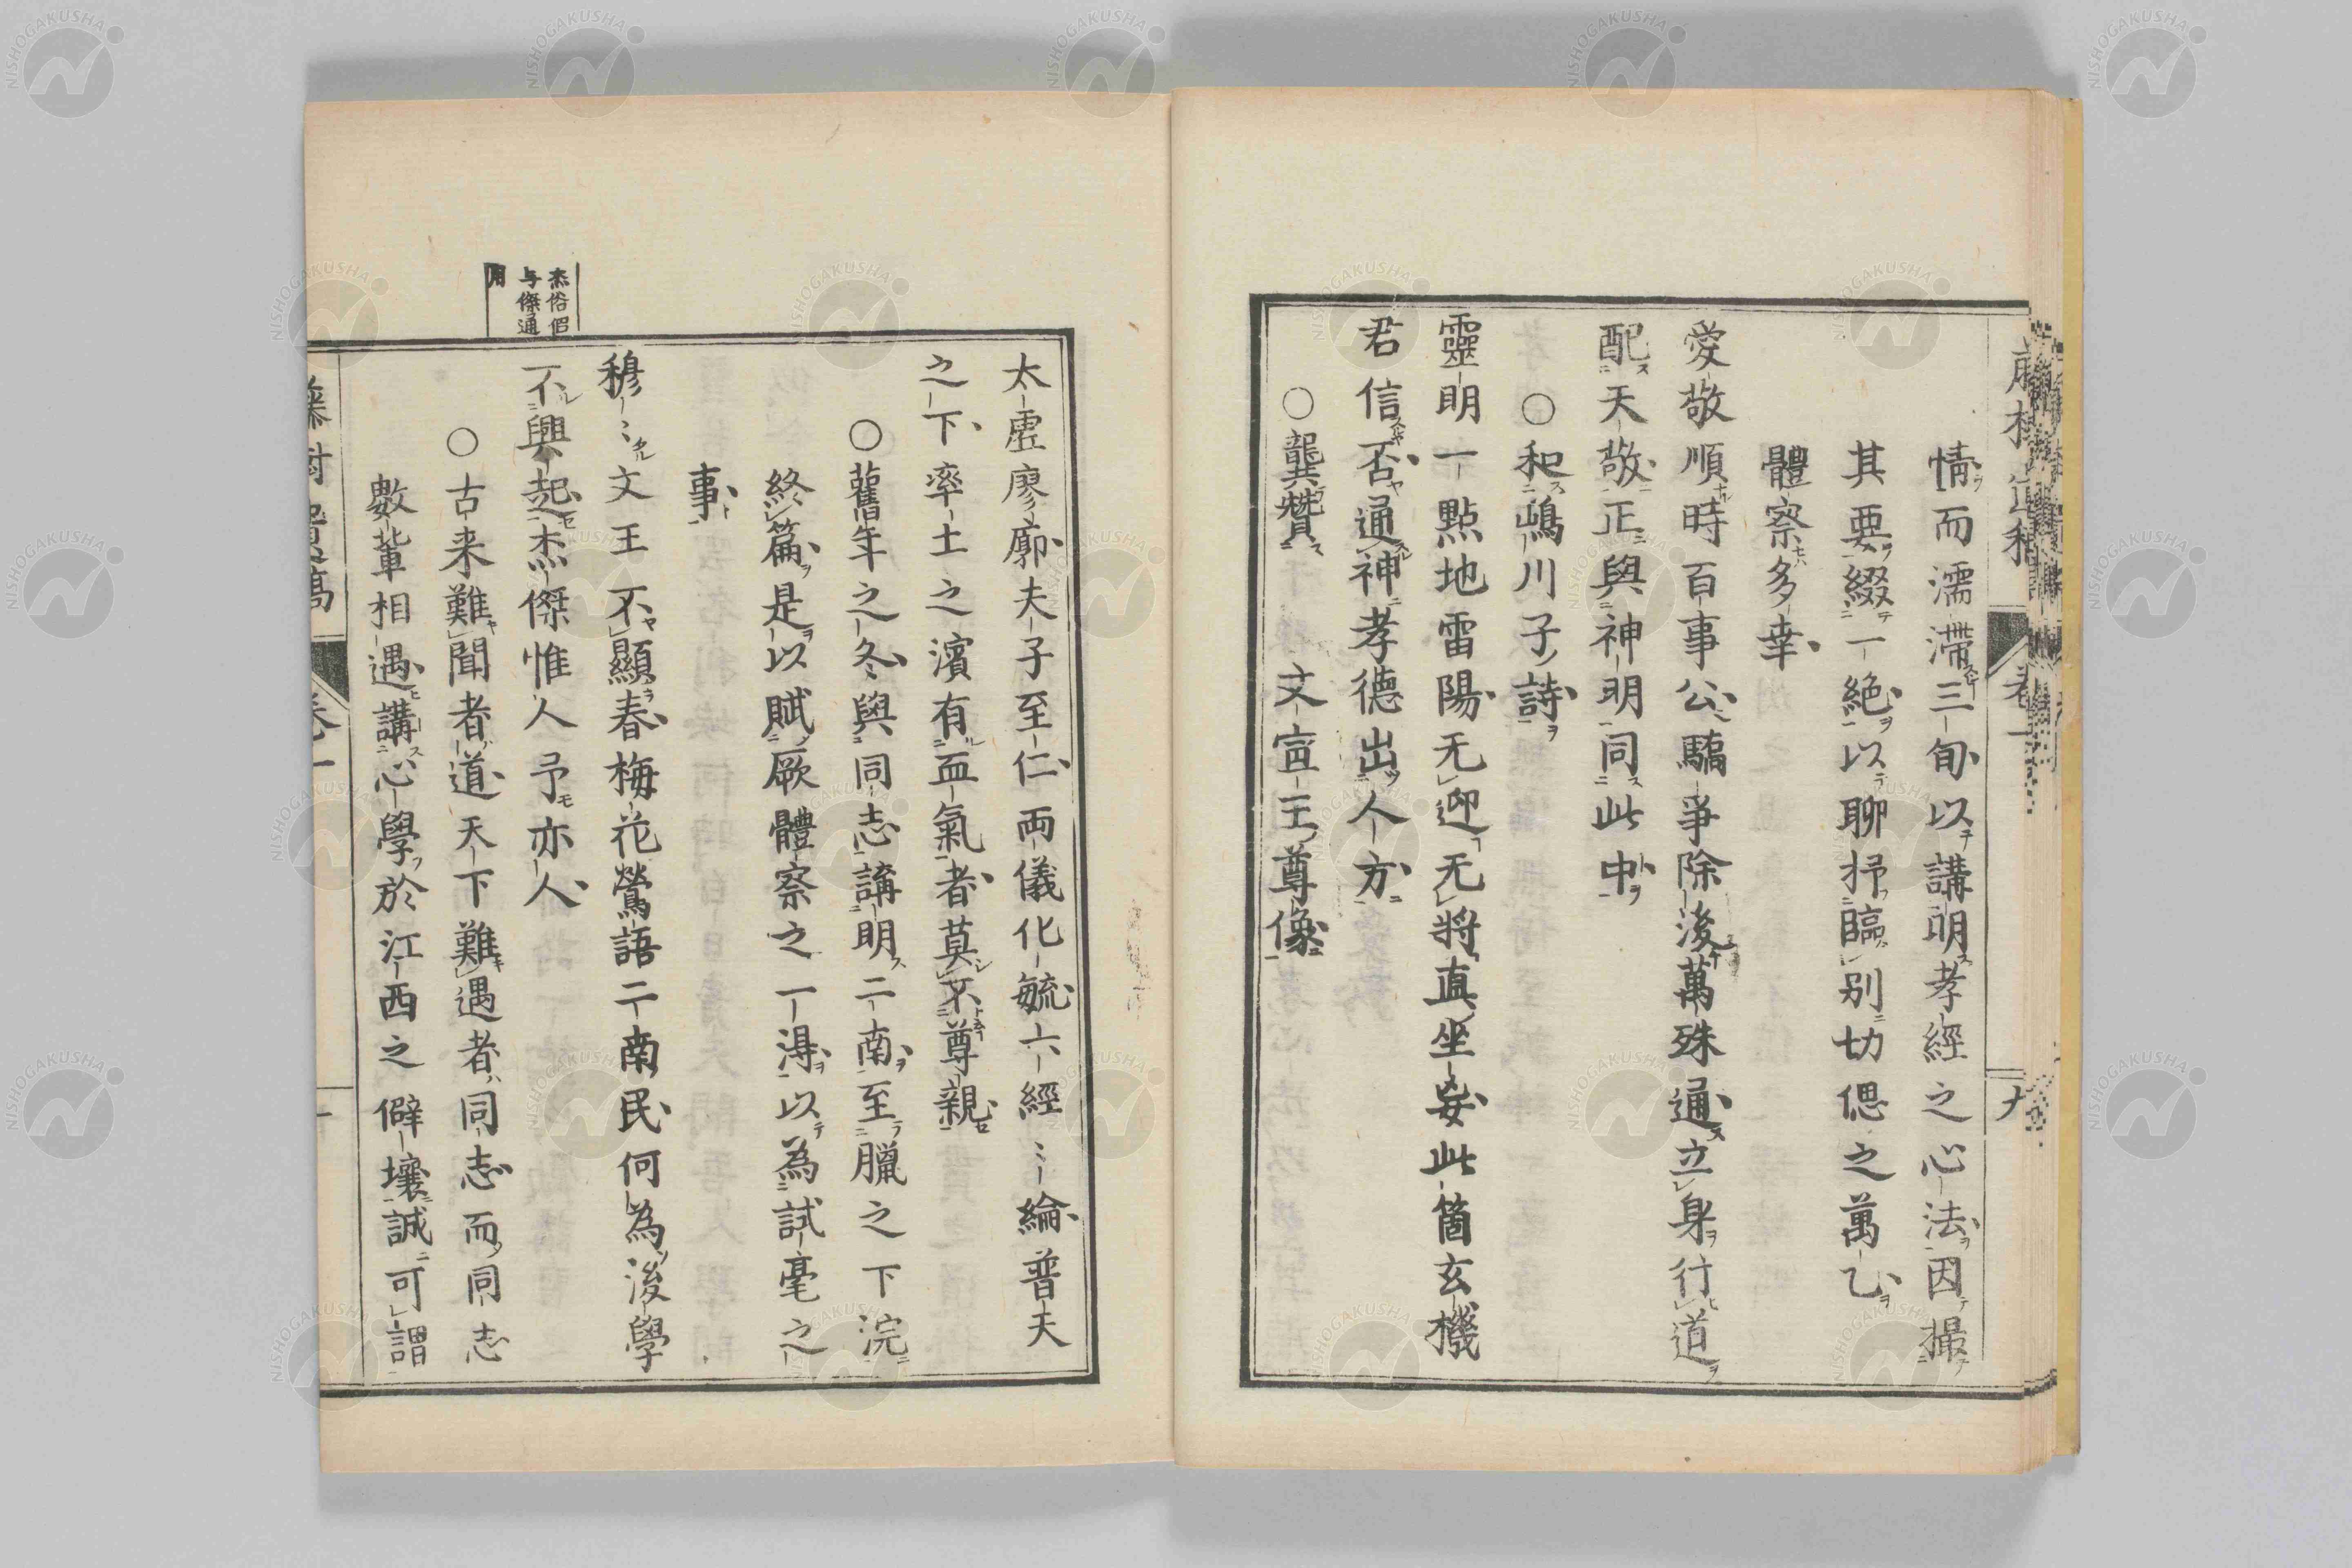 情而濡滯三旬以講明孝經之心法因撮
其要綴一絶以聊抒臨別切偲之萬乙
體察多幸
愛敬順時百事公驕爭除後萬殊通立身行道
配天敬正與神明同此中
○和嶋川子詩
靈明一點地雷陽无迎无將真坐妄此箇玄機
君信否通神孝德出人方
○龔贊文宣王尊像
卷一
九
太虛廖廓夫子至仁両儀化毓六經〻綸普夫
之下率土之濱有血氣者莫不尊親
○舊年之冬與同志講明二南至臘之下浣
終篇是以賦厥體察之一得以為試毫之
事
穆〻文王不顯春梅花鶯語二南民何為後學
不興起杰傑惟人予亦人
杰俗侣
与傑通
用
○古来難聞者道天下難遇者同志而同志
數輩相遇講心學於江西之僻壤誠可謂
卷一